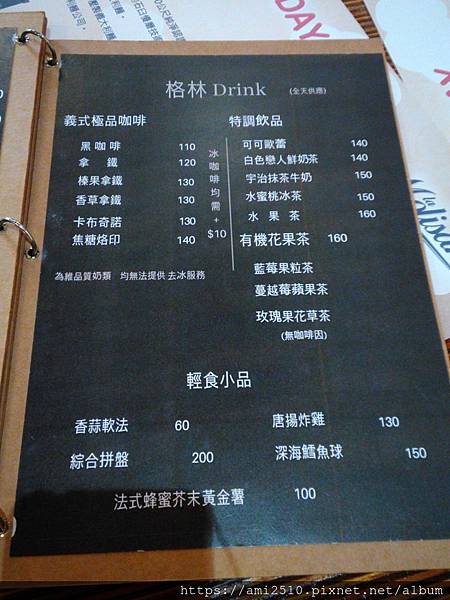 格林 Drink (全天供應)
義式極品咖啡
黑咖啡 110
拿鐵 120
榛果拿鐵 130
香草拿鐵 130
卡布奇諾 130
焦糖烙印 140
冰咖啡均需+$10
為維品質奶類 均無法提供去冰服務
特調飲品
可可歐蕾 140
白色戀人鮮奶茶 140
宇治抹茶牛奶 150
水蜜桃冰茶 150
水果茶 160
有機花果茶 160
藍莓果粒茶
蔓越莓蘋果茶
玫瑰果花草茶
(無咖啡因)
輕食小品
香蒜軟法 60
唐揚炸雞 130
綜合拼盤 200
深海鱈魚球 150
法式蜂蜜芥末黃金薯 100
DAY
la
Melisa
https://ami2510.pixnet.net/album